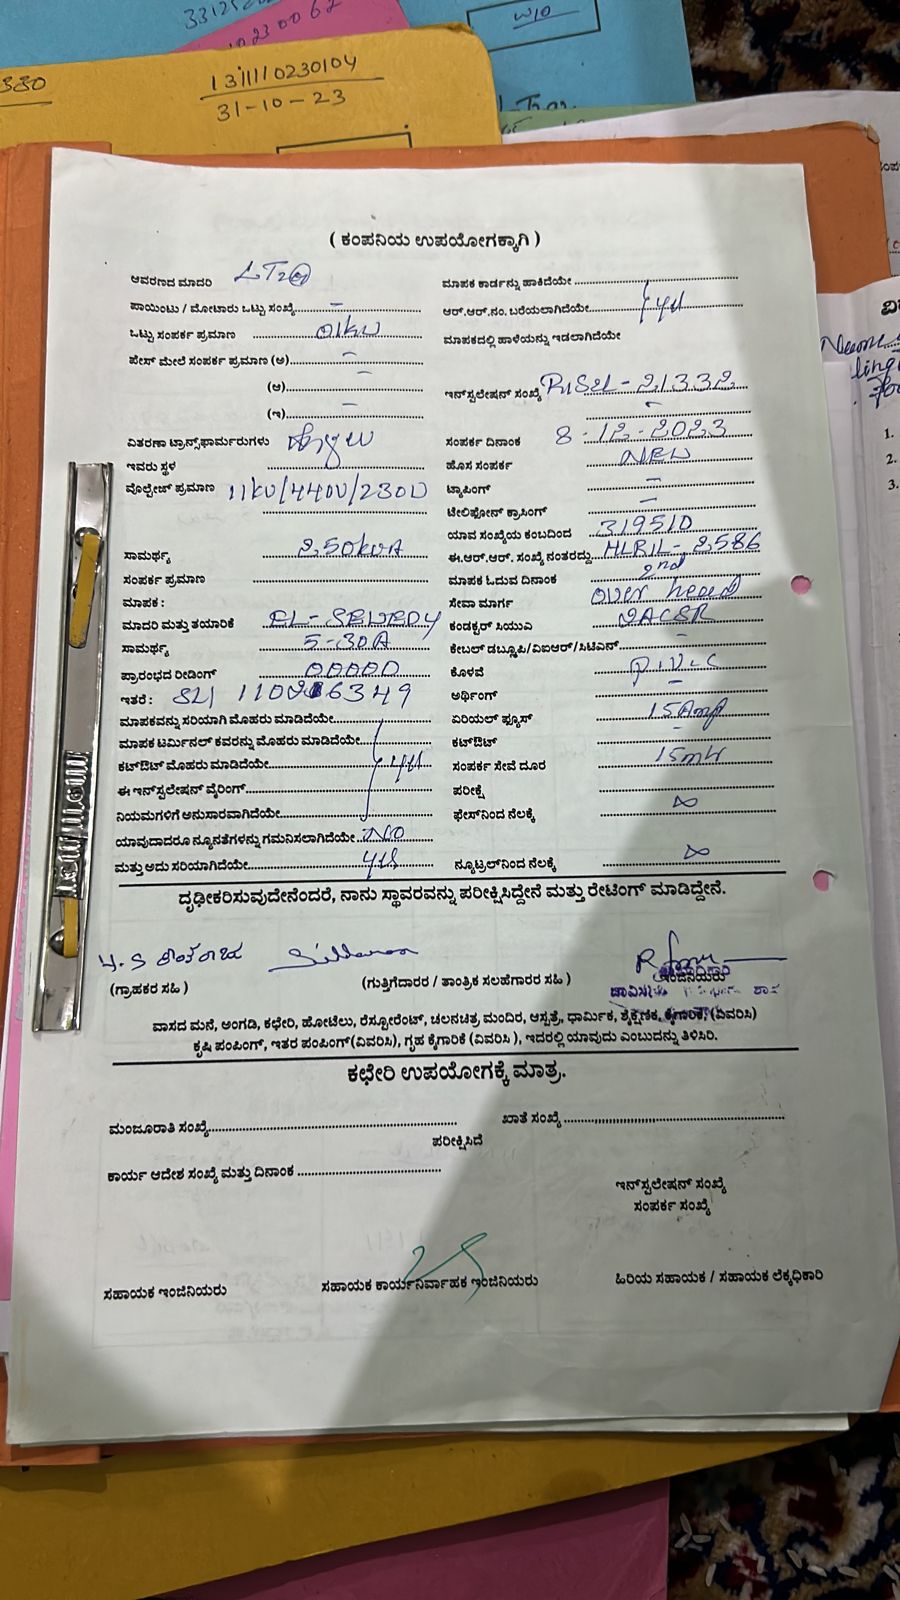 1311110230104
31-10-23
W10
( ಕಂಪನಿಯ ಉಪಯೋಗಕ್ಕಾಗಿ )
ಆವರಣದ ಮಾದರಿ LT2@
ಮಾಪಕ ಕಾರ್ಡನ್ನು ಹಾಕಿದೆಯೇ
ಪಾಯಿಂಟು / ಮೋಟಾರು ಒಟ್ಟು ಸಂಖ್ಯೆ –
ಆರ್.ಆರ್.ನಂ. ಬರೆಯಲಾಗಿದೆಯೇ
ಒಟ್ಟು ಸಂಪರ್ಕ ಪ್ರಮಾಣ 01kw
ಮಾಪಕದಲ್ಲಿ ಹಾಳೆಯನ್ನು ಇಡಲಾಗಿದೆಯೇ
ಪೇಸ್ ಮೇಲೆ ಸಂಪರ್ಕ ಪ್ರಮಾಣ (ಅ) –
(ಆ) –
ಇನ್‌ಸ್ಟಲೇಷನ್ ಸಂಖ್ಯೆ 21332
(ಇ) –
ವಿತರಣಾ ಟ್ರಾನ್ಸ್‌ಫಾರ್ಮರುಗಳು
ಸಂಪರ್ಕ ದಿನಾಂಕ 8-12-2023
ಇವರು ಸ್ಥಳ
ಹೊಸ ಸಂಪರ್ಕ NEW
ವೊಲ್ಟೇಜ್ ಪ್ರಮಾಣ 11kV/440V/230V
ಟ್ಯಾಪಿಂಗ್ –
ಟೇಲಿಫೋನ್ ಕ್ರಾಸಿಂಗ್ –
ಯಾವ ಸಂಖ್ಯೆಯ ಕಂಬದಿಂದ 319510
ಸಾಮರ್ಥ್ಯ 250kvA
ಈ.ಆರ್.ಆರ್. ಸಂಖ್ಯೆ ನಂತರದ್ದು HLRIL-2586
ಸಂಪರ್ಕ ಪ್ರಮಾಣ
ಮಾಪಕ ಓದುವ ದಿನಾಂಕ 2nd
ಮಾಪಕ :
ಸೇವಾ ಮಾರ್ಗ over head
ಮಾದರಿ ಮತ್ತು ತಯಾರಿಕೆ EL-SEWEDY
ಕಂಡಕ್ಟರ್ ಸಿಯುಎ
ಸಾಮರ್ಥ್ಯ 5-30A
ಕೇಬಲ್ ಡಬ್ಲೂಪಿ/ವಿಐಆರ್/ಸಿಟಿಎಸ್ –
ಪ್ರಾರಂಭದ ರೀಡಿಂಗ್ 00000
ಕೊಳವೆ P.V.C
ಇತರೆ :
ಅರ್ಥಿಂಗ್ –
ಮಾಪಕವನ್ನು ಸರಿಯಾಗಿ ಮೊಹರು ಮಾಡಿದೆಯೇ
ಏರಿಯಲ್ ಫ್ಯೂಸ್ 15Amp
ಮಾಪಕ ಟರ್ಮಿನಲ್ ಕವರನ್ನು ಮೊಹರು ಮಾಡಿದೆಯೇ
ಕಟ್‌ಔಟ್ –
ಕಟ್‌ಔಟ್ ಮೊಹರು ಮಾಡಿದೆಯೇ yes
ಸಂಪರ್ಕ ಸೇವೆ ದೂರ
ಈ ಇನ್‌ಸ್ಟಲೇಷನ್ ವೈರಿಂಗ್
ಪರೀಕ್ಷೆ
ನಿಯಮಗಳಿಗೆ ಅನುಸಾರವಾಗಿದೆಯೇ
ಫೇಸ್‌ನಿಂದ ನೆಲಕ್ಕೆ ∞
ಯಾವುದಾದರೂ ನ್ಯೂನತೆಗಳನ್ನು ಗಮನಿಸಲಾಗಿದೆಯೇ NO
ಮತ್ತು ಅದು ಸರಿಯಾಗಿದೆಯೇ yes
ನ್ಯೂಟ್ರಲ್‌ನಿಂದ ನೆಲಕ್ಕೆ ∞
ದೃಢೀಕರಿಸುವುದೇನೆಂದರೆ, ನಾನು ಸ್ಥಾವರವನ್ನು ಪರೀಕ್ಷಿಸಿದ್ದೇನೆ ಮತ್ತು ರೇಟಿಂಗ್ ಮಾಡಿದ್ದೇನೆ.
(ಗ್ರಾಹಕರ ಸಹಿ )
(ಗುತ್ತಿಗೆದಾರರ / ತಾಂತ್ರಿಕ ಸಲಹೆಗಾರರ ಸಹಿ )
ಇಂಜಿನಿಯರು
ವಾಸದ ಮನೆ, ಅಂಗಡಿ, ಕಛೇರಿ, ಹೋಟೆಲು, ರೆಸ್ಟೋರೆಂಟ್, ಚಲನಚಿತ್ರ ಮಂದಿರ, ಆಸ್ಪತ್ರೆ, ಧಾರ್ಮಿಕ, ಶೈಕ್ಷಣಿಕ, ಕೈಗಾರಿಕೆ, (ವಿವರಿಸಿ)
ಕೃಷಿ ಪಂಪಿಂಗ್, ಇತರ ಪಂಪಿಂಗ್(ವಿವರಿಸಿ), ಗೃಹ ಕೈಗಾರಿಕೆ (ವಿವರಿಸಿ ), ಇದರಲ್ಲಿ ಯಾವುದು ಎಂಬುದನ್ನು ತಿಳಿಸಿರಿ.
ಕಛೇರಿ ಉಪಯೋಗಕ್ಕೆ ಮಾತ್ರ.
ಮಂಜೂರಾತಿ ಸಂಖ್ಯೆ
ಖಾತೆ ಸಂಖ್ಯೆ
ಪರೀಕ್ಷಿಸಿದೆ
ಕಾರ್ಯ ಆದೇಶ ಸಂಖ್ಯೆ ಮತ್ತು ದಿನಾಂಕ
ಇನ್‌ಸ್ಟಲೇಷನ್ ಸಂಖ್ಯೆ
ಸಂಪರ್ಕ ಸಂಖ್ಯೆ
ಸಹಾಯಕ ಇಂಜಿನಿಯರು
ಸಹಾಯಕ ಕಾರ್ಯನಿರ್ವಾಹಕ ಇಂಜಿನಿಯರು
ಹಿರಿಯ ಸಹಾಯಕ / ಸಹಾಯಕ ಲೆಕ್ಕಧಿಕಾರಿ